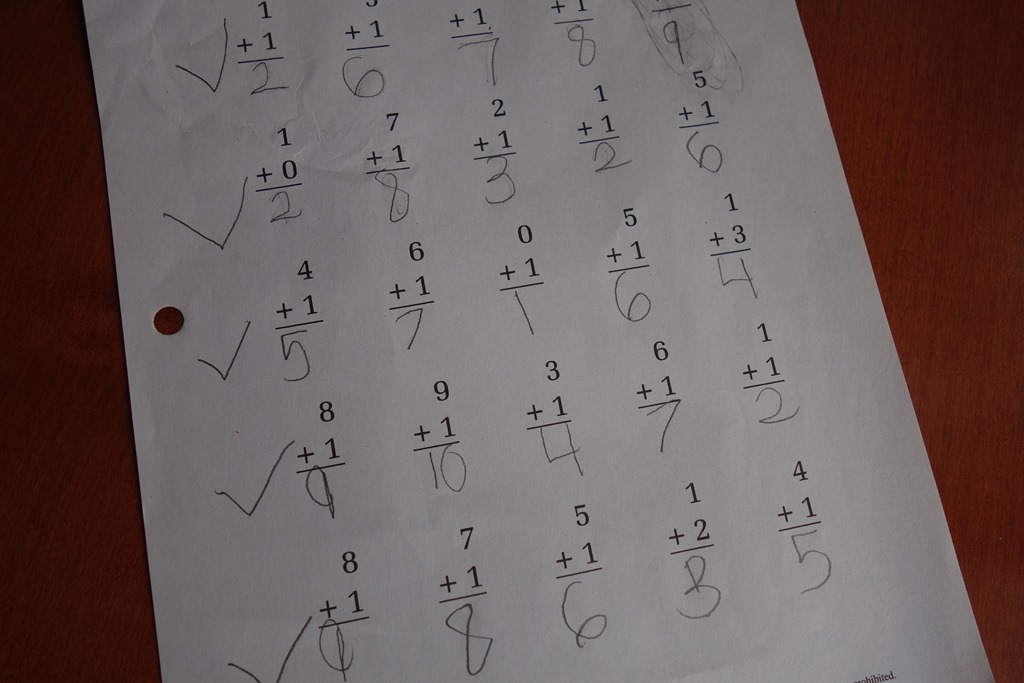 1
+ 1 + 1 + 1 + 1
2 6 7 8 9
1 7 2 1 5
+ 0 + 1 + 1 + 1 + 1
2 8 3 2 6
4 6 0 5 1
+ 1 + 1 + 1 + 1 + 3
5 7 1 6 4
8 9 3 6 1
+ 1 + 1 + 1 + 1 + 1
9 10 4 7 2
8 7 5 1 4
+ 1 + 1 + 1 + 2 + 1
9 8 6 3 5
rohibited.